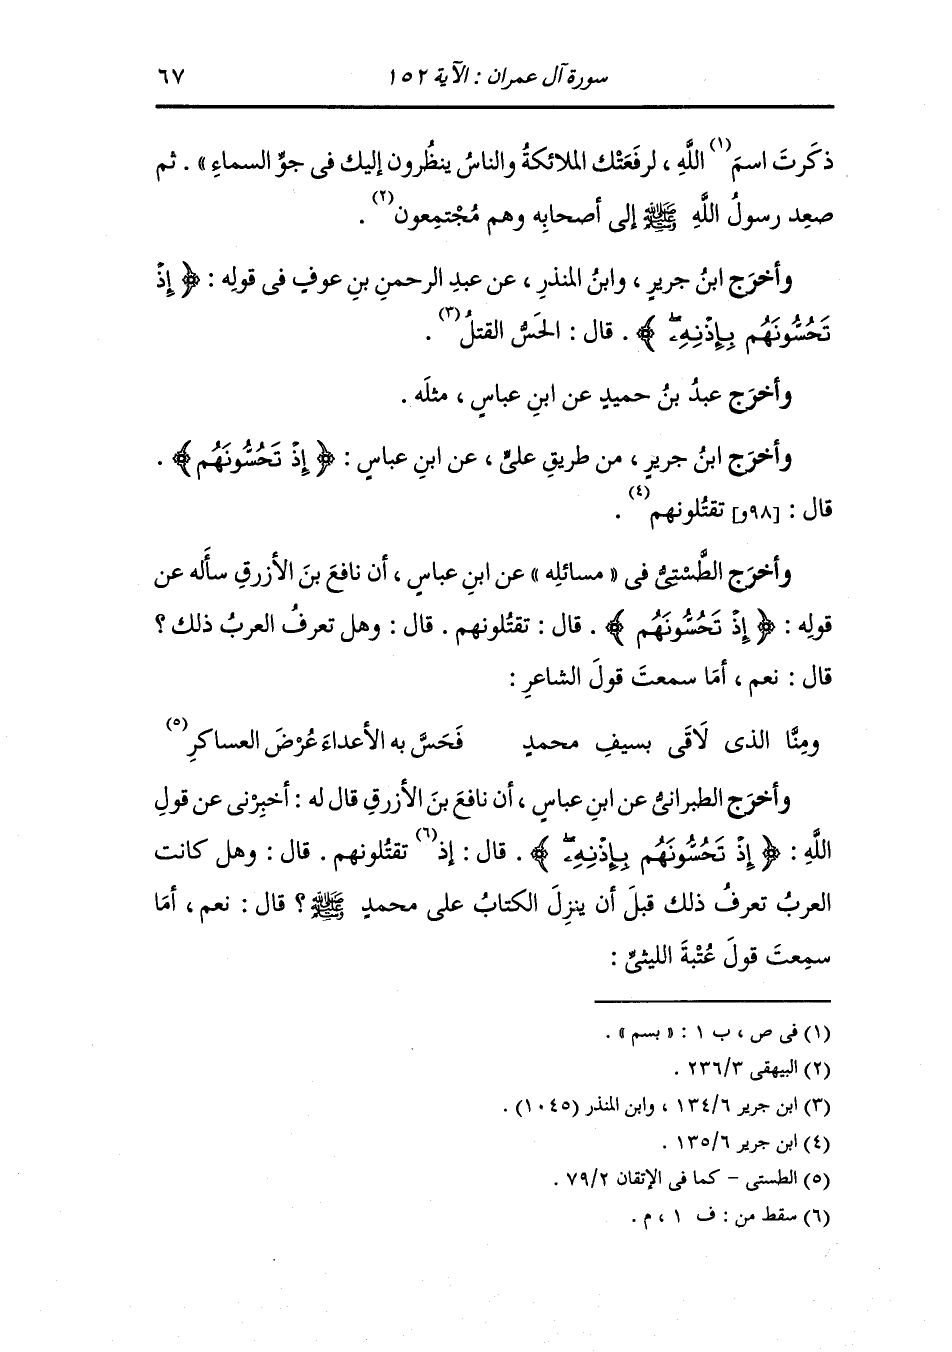 سورة آل عمران : الآية ١٥٢ ٦٧
ذكَرتَ اسمَ(١) اللَّهِ ، لرفَعَتْك الملائكةُ والناسُ ينظُرون إليك فى جوِّ السماءِ » . ثم
صعِد رسولُ اللَّهِ ﷺ إلى أصحابِه وهم مُجْتمِعون(٢) .
وأخرَج ابنُ جريرٍ ، وابنُ المنذرِ ، عن عبدِ الرحمنِ بنِ عوفٍ فى قولِه : ﴿ إِذْ
تَحُسُّونَهُم بِإِذْنِهِۦۖ ﴾ . قال : الحَسُّ القتلُ(٣) .
وأخرَج عبدُ بنُ حميدٍ عن ابنِ عباسٍ ، مثلَه .
وأخرَج ابنُ جريرٍ ، من طريقِ علىٍّ ، عن ابنِ عباسٍ : ﴿ إِذْ تَحُسُّونَهُم ﴾ .
قال : [٩٨و] تقتُلونهم(٤) .
وأخرَج الطَّسْتِىُّ فى « مسائلِه » عن ابنِ عباسٍ ، أن نافعَ بنَ الأزرقِ سأَله عن
قولِه : ﴿ إِذْ تَحُسُّونَهُم ﴾ . قال : تقتُلونهم . قال : وهل تعرفُ العربُ ذلك ؟
قال : نعم ، أمَا سمعتَ قولَ الشاعرِ :
ومِنَّا الذى لَاقَى بسيفِ محمدٍ فَحَسَّ به الأعداءَ عُرْضَ العساكرِ(٥)
وأخرَج الطبرانىُّ عن ابنِ عباسٍ ، أن نافعَ بنَ الأزرقِ قال له : أخبِرْنى عن قولِ
اللَّهِ : ﴿ إِذْ تَحُسُّونَهُم بِإِذْنِهِۦۖ ﴾ . قال : إذ(٦) تقتُلونهم . قال : وهل كانت
العربُ تعرفُ ذلك قبلَ أن ينزِلَ الكتابُ على محمدٍ ﷺ ؟ قال : نعم ، أمَا
سمِعتَ قولَ عُتْبةَ الليثىِّ :
(١) فى ص ، ب ١ : « بسم » .
(٢) البيهقى ٢٣٦/٣ .
(٣) ابن جرير ١٣٤/٦ ، وابن المنذر (١٠٤٥) .
(٤) ابن جرير ١٣٥/٦ .
(٥) الطستى - كما فى الإتقان ٧٩/٢ .
(٦) سقط من : ف ١ ، م .